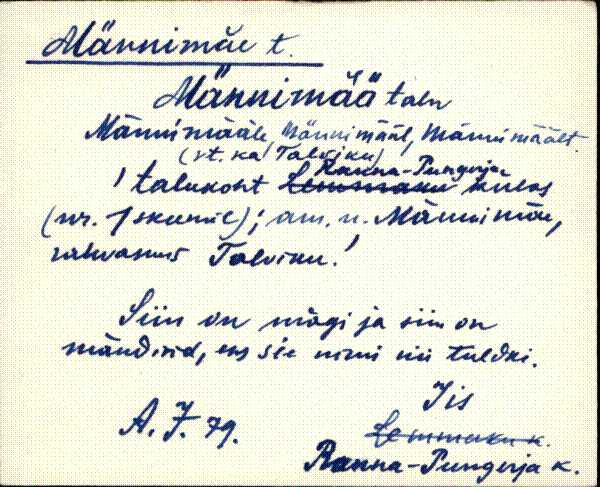 Männimäe t.
Männimää talu
Männimääle, Männimääl, Männimäält
(vt. ka Talviku)
Ranna-Pungerja
! talukoht Lemmaku külas
(nr. 1 skeemil); am. n. Männimäe,
rahvasuus Talviku.!
Siin on mägi ja siin on
männid, eks sie nimi nii tuldki.
Iis
A. J. 79.
Lemmaku k.
Ranna-Pungerja k.